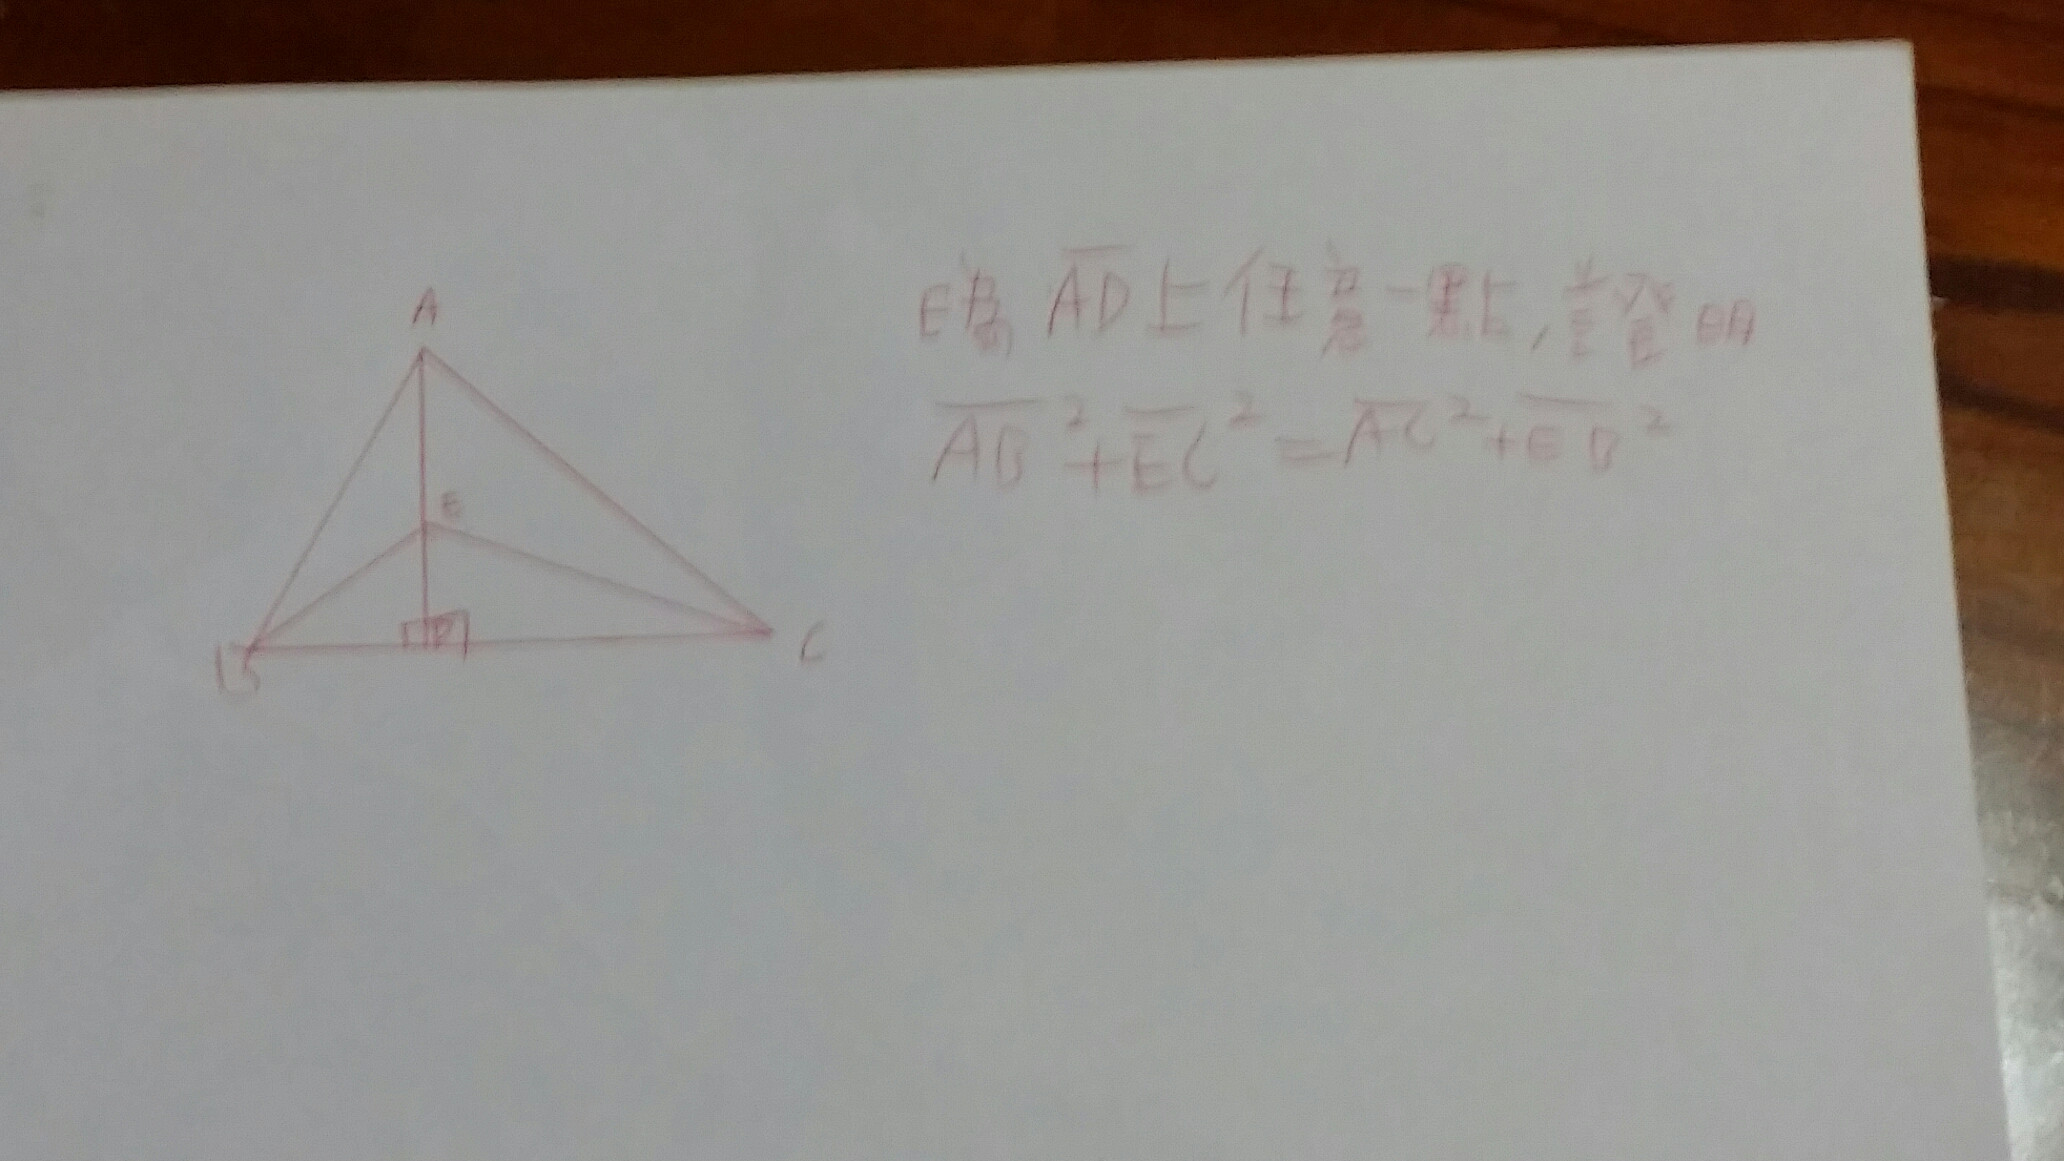 A
E
D
B
C
E為 A̅D̅ 上任意一點,證明
A̅B̅²+E̅C̅²=A̅C̅²+E̅B̅²